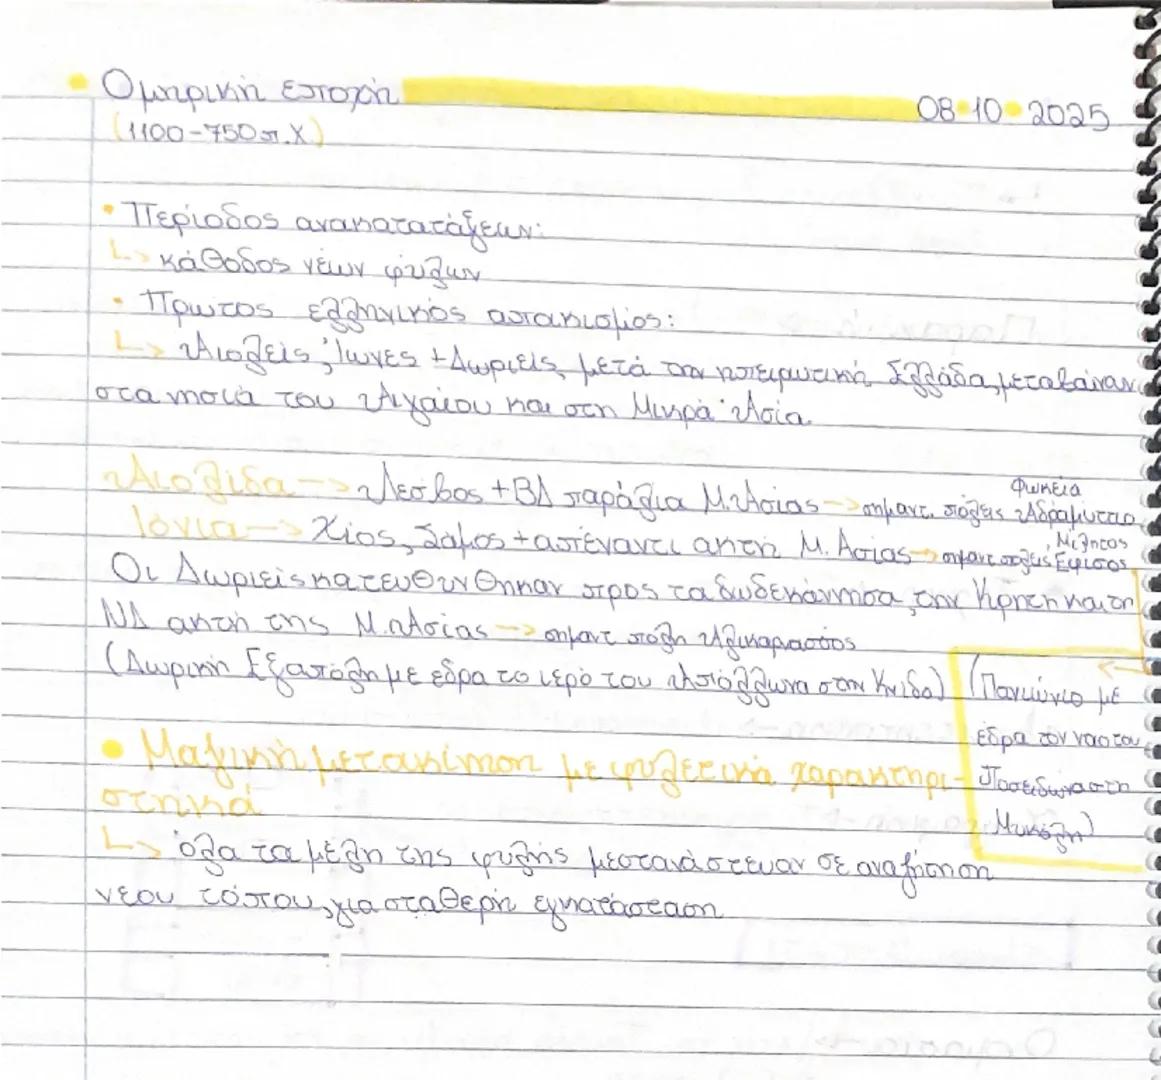 • Ομηρική εποχή 08-10-2025
(1100-750 π.Χ.)
• Περίοδος ανακατατάξεων:
↳ κάθοδος νέων φύλων
• Πρώτος ελληνικός αποικισμός:
↳ Αιολείς, Ίωνες + Δωριείς, μετά την ηπειρωτική Ελλάδα, μεταβαίναν
στα νησιά του Αιγαίου και στη Μικρά Ασία.
Αιολίδα → Λέσβος + ΒΔ παράλια Μ. Ασίας → σημαντ. πόλεις Αδραμύττιο, Φωκεία
Ιόνια → Χίος, Σάμος + απέναντι ακτή Μ. Ασίας → σημαντ. πόλεις Έφισος, Μίλητος
Οι Δωριείς κατευθύνθηκαν προς τα δωδεκάνησα, την Κρήτη και τη
ΝΔ ακτή της Μ. Ασίας → σημαντ πόλη Αλικαρασσός
(Δωρική Εξαπόλη με έδρα το ιερό του Απόλλωνα στην Κνίδο)
(Πανιώνιο με
έδρα τον ναό του
Ποσειδώνα στη
Μυκάλη)
• Μαζική μετακίνηση με φυλετικά χαρακτηρι-
στηκά
↳ όλα τα μέλη της φυλής μεστανάστευαν σε αναζήτηση
νέου τόπου, για σταθερή εγκατάσταση